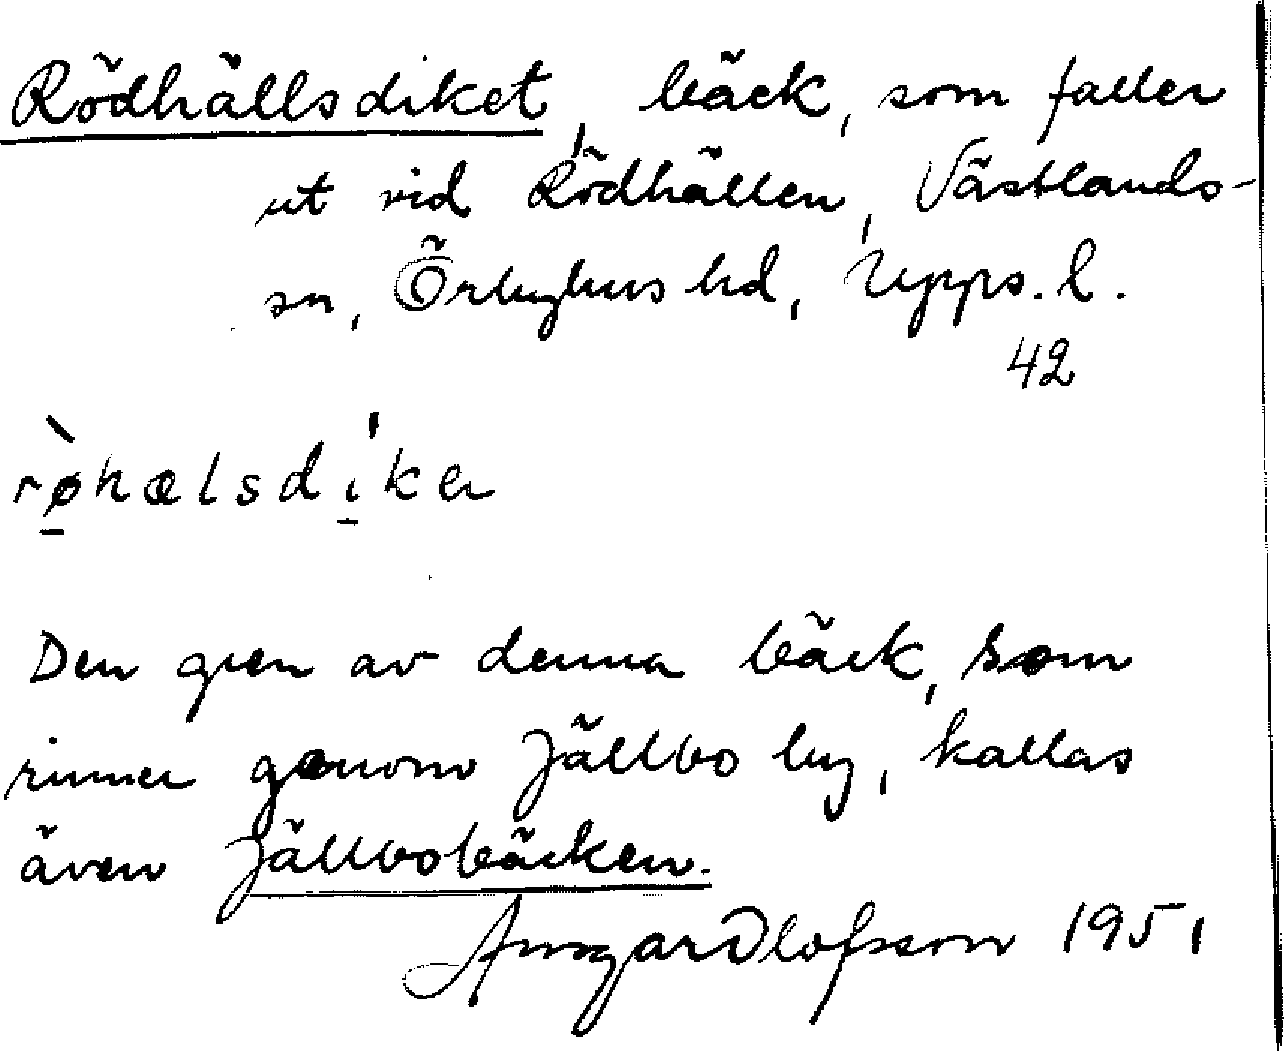 Rödhällsdiket, bäck, som faller
ut vid Rödhällen, Västlands-
sn, Örbyhus hd, Upps. l.
42
rø̱̀hælsdı̱́ker
Den gren av denna bäck, som
rinner genom Jällbo by, kallas
även Jällbobäcken.
Ansgar Olofsson 1951